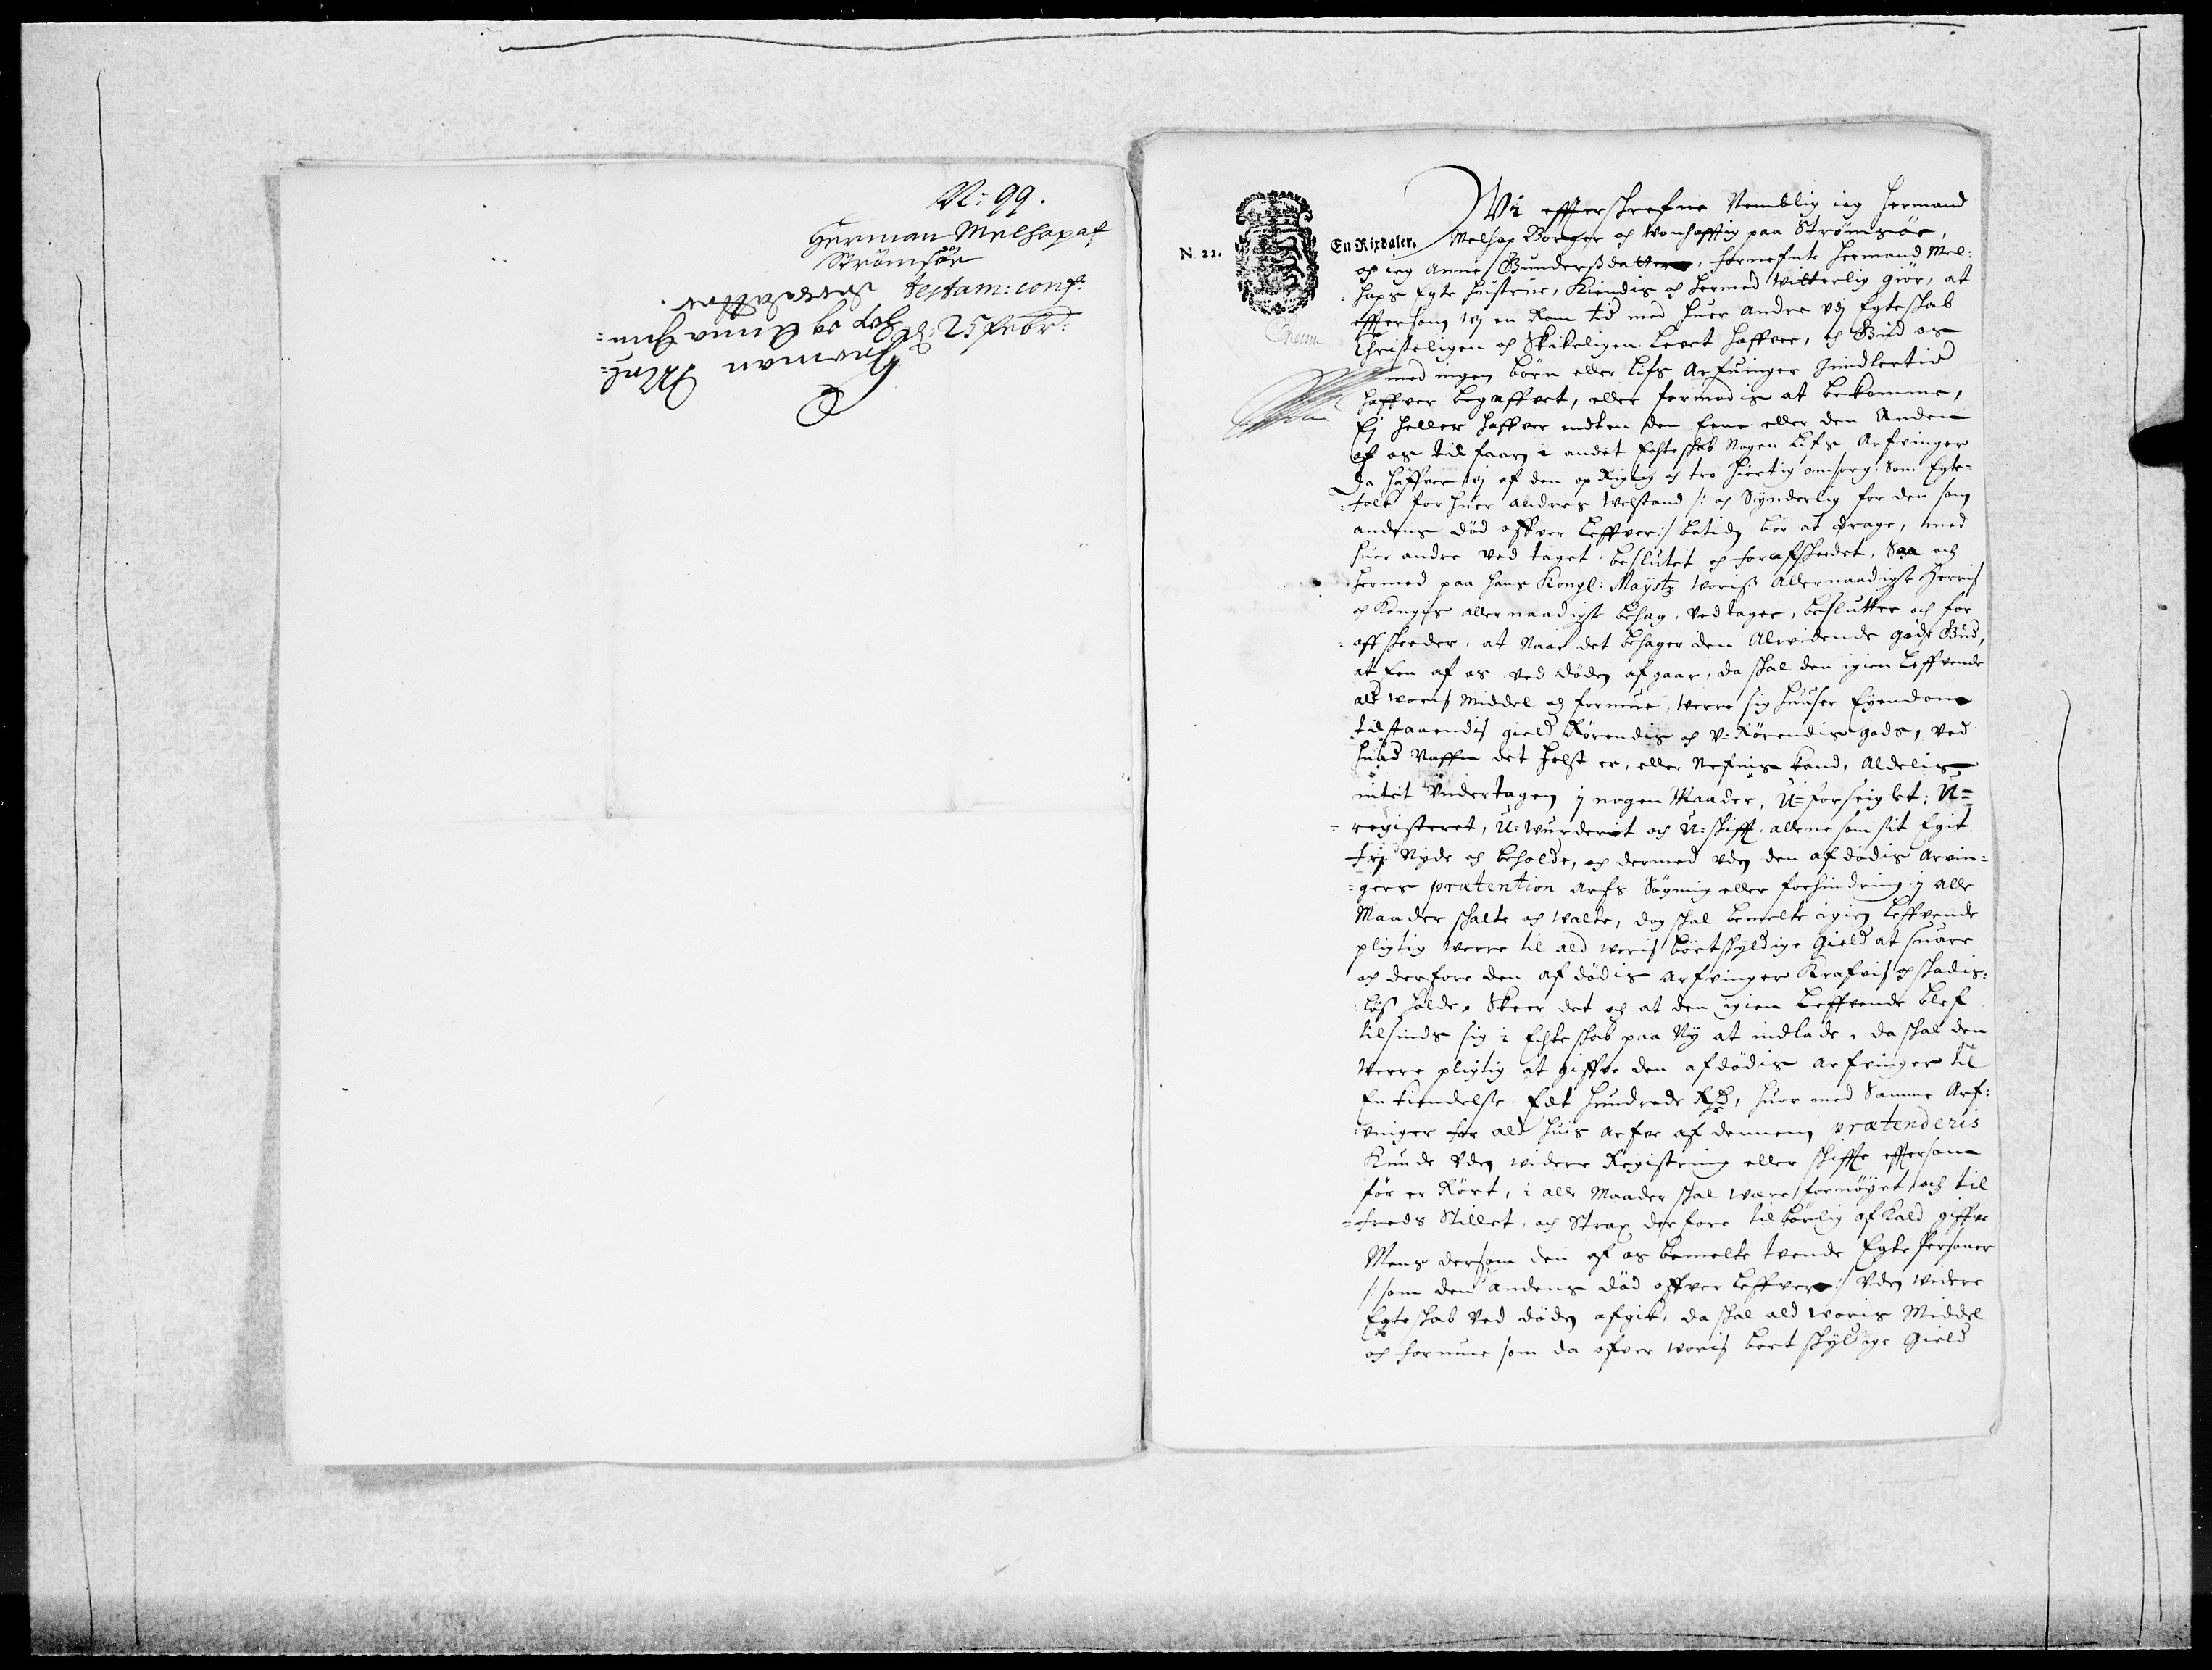 N: 99.
Herman Melhop af
Strömsöe
testam: conf:
d: 25 Febr:
Herman Mel=
hop og Anna Gun=
dersdatter.
N. 22.
En Rixdaler.
Wi effterschrefne Nemblig ieg Hermand
Melhop Borger och Wonhafftig paa Strømsöe,
og ieg Anne Gunderßdatter, fornefnte Hermand Mel:
hops Egte Hustrue, Kiendis og hermed Witterlig giør, at
efftersom wj en Rom tid med huer andre vdj Egteskab
Christeligen och Skikeligen Levet haffver, och Gud os
med ingen børn eller Lifs Arfuinger Jmidlertid
haffver begaffvet, eller formodis at bekomme,
Ej heller haffver endten den Eene eller den Anden
af os til foarn i andet Echteskab Nogen Lifs Arfvinger
Da haffver wj af den op Rigtig och tro hiertig omsorg, Som Egte=
folk for huer andres Welstand /: och Synderlig for den som
andens död offver Leffver :/ betids bör at drage, med
huer andre ved taget, besluttet och forafskedet, Saa och
hermed paa hans Kongl: Maystz. woriß Allernaadigste Herris
og Kongis allernaadigste behag, vedtager, beslutter och for
affskeeder, at Naar det behager den Alvidende gode Gud,
at Een af os ved døden afgaar, da skal den igien Leffvende
ald woris Middel og formue, werre sig Huuser Eyendom
tilstaaendis gield Rörendis og V-Rörendis gods, ved
huad Naffn det helst er, eller Nefnis kand, Aldelis
intet Vndertagen j nogen Maader, U=forseiglet: U=
=registeret, U:wurderit och U=skifft allene som sit Egit
frj Nyde og beholde, og dermed vden den afdödis Arvin=
=gers prætention Arfs Søgning eller forhindring j alle
Maader skalte och walte, dog skal bemelte igien Leffvende
pligtig werre til ald woris bortskyldige Gield at suare
och derfore den af dödis Arfvinger Krafvis og skadis=
:løs holde, Skeer det og at den igien Leffvende blef
tilsinds sig i Echteskab paa Ny at indlade, da skal den
Werre pligtig at giffve den afdödis Arfvinger til
En Kiendelse Eet Hundrede Rdr, huor med Samme Arf:
vinger for ald huis Arfve af dennem prætenderis
Kunde Vden widere Registring eller skiffte efftersom
för er Rört, i alle Maader skal være fornöyet och til
=freds Stillet, och Strax derfore tilbörlig afkald giffve
Mens dersom den af os bemelte tvende Egte Personer
/: som den andens död offver Leffver :/ Vden widere
Egteskab Ved döden afgik, da skal ald woris Middel
och formue som da ofver woris bort skyldige Gield